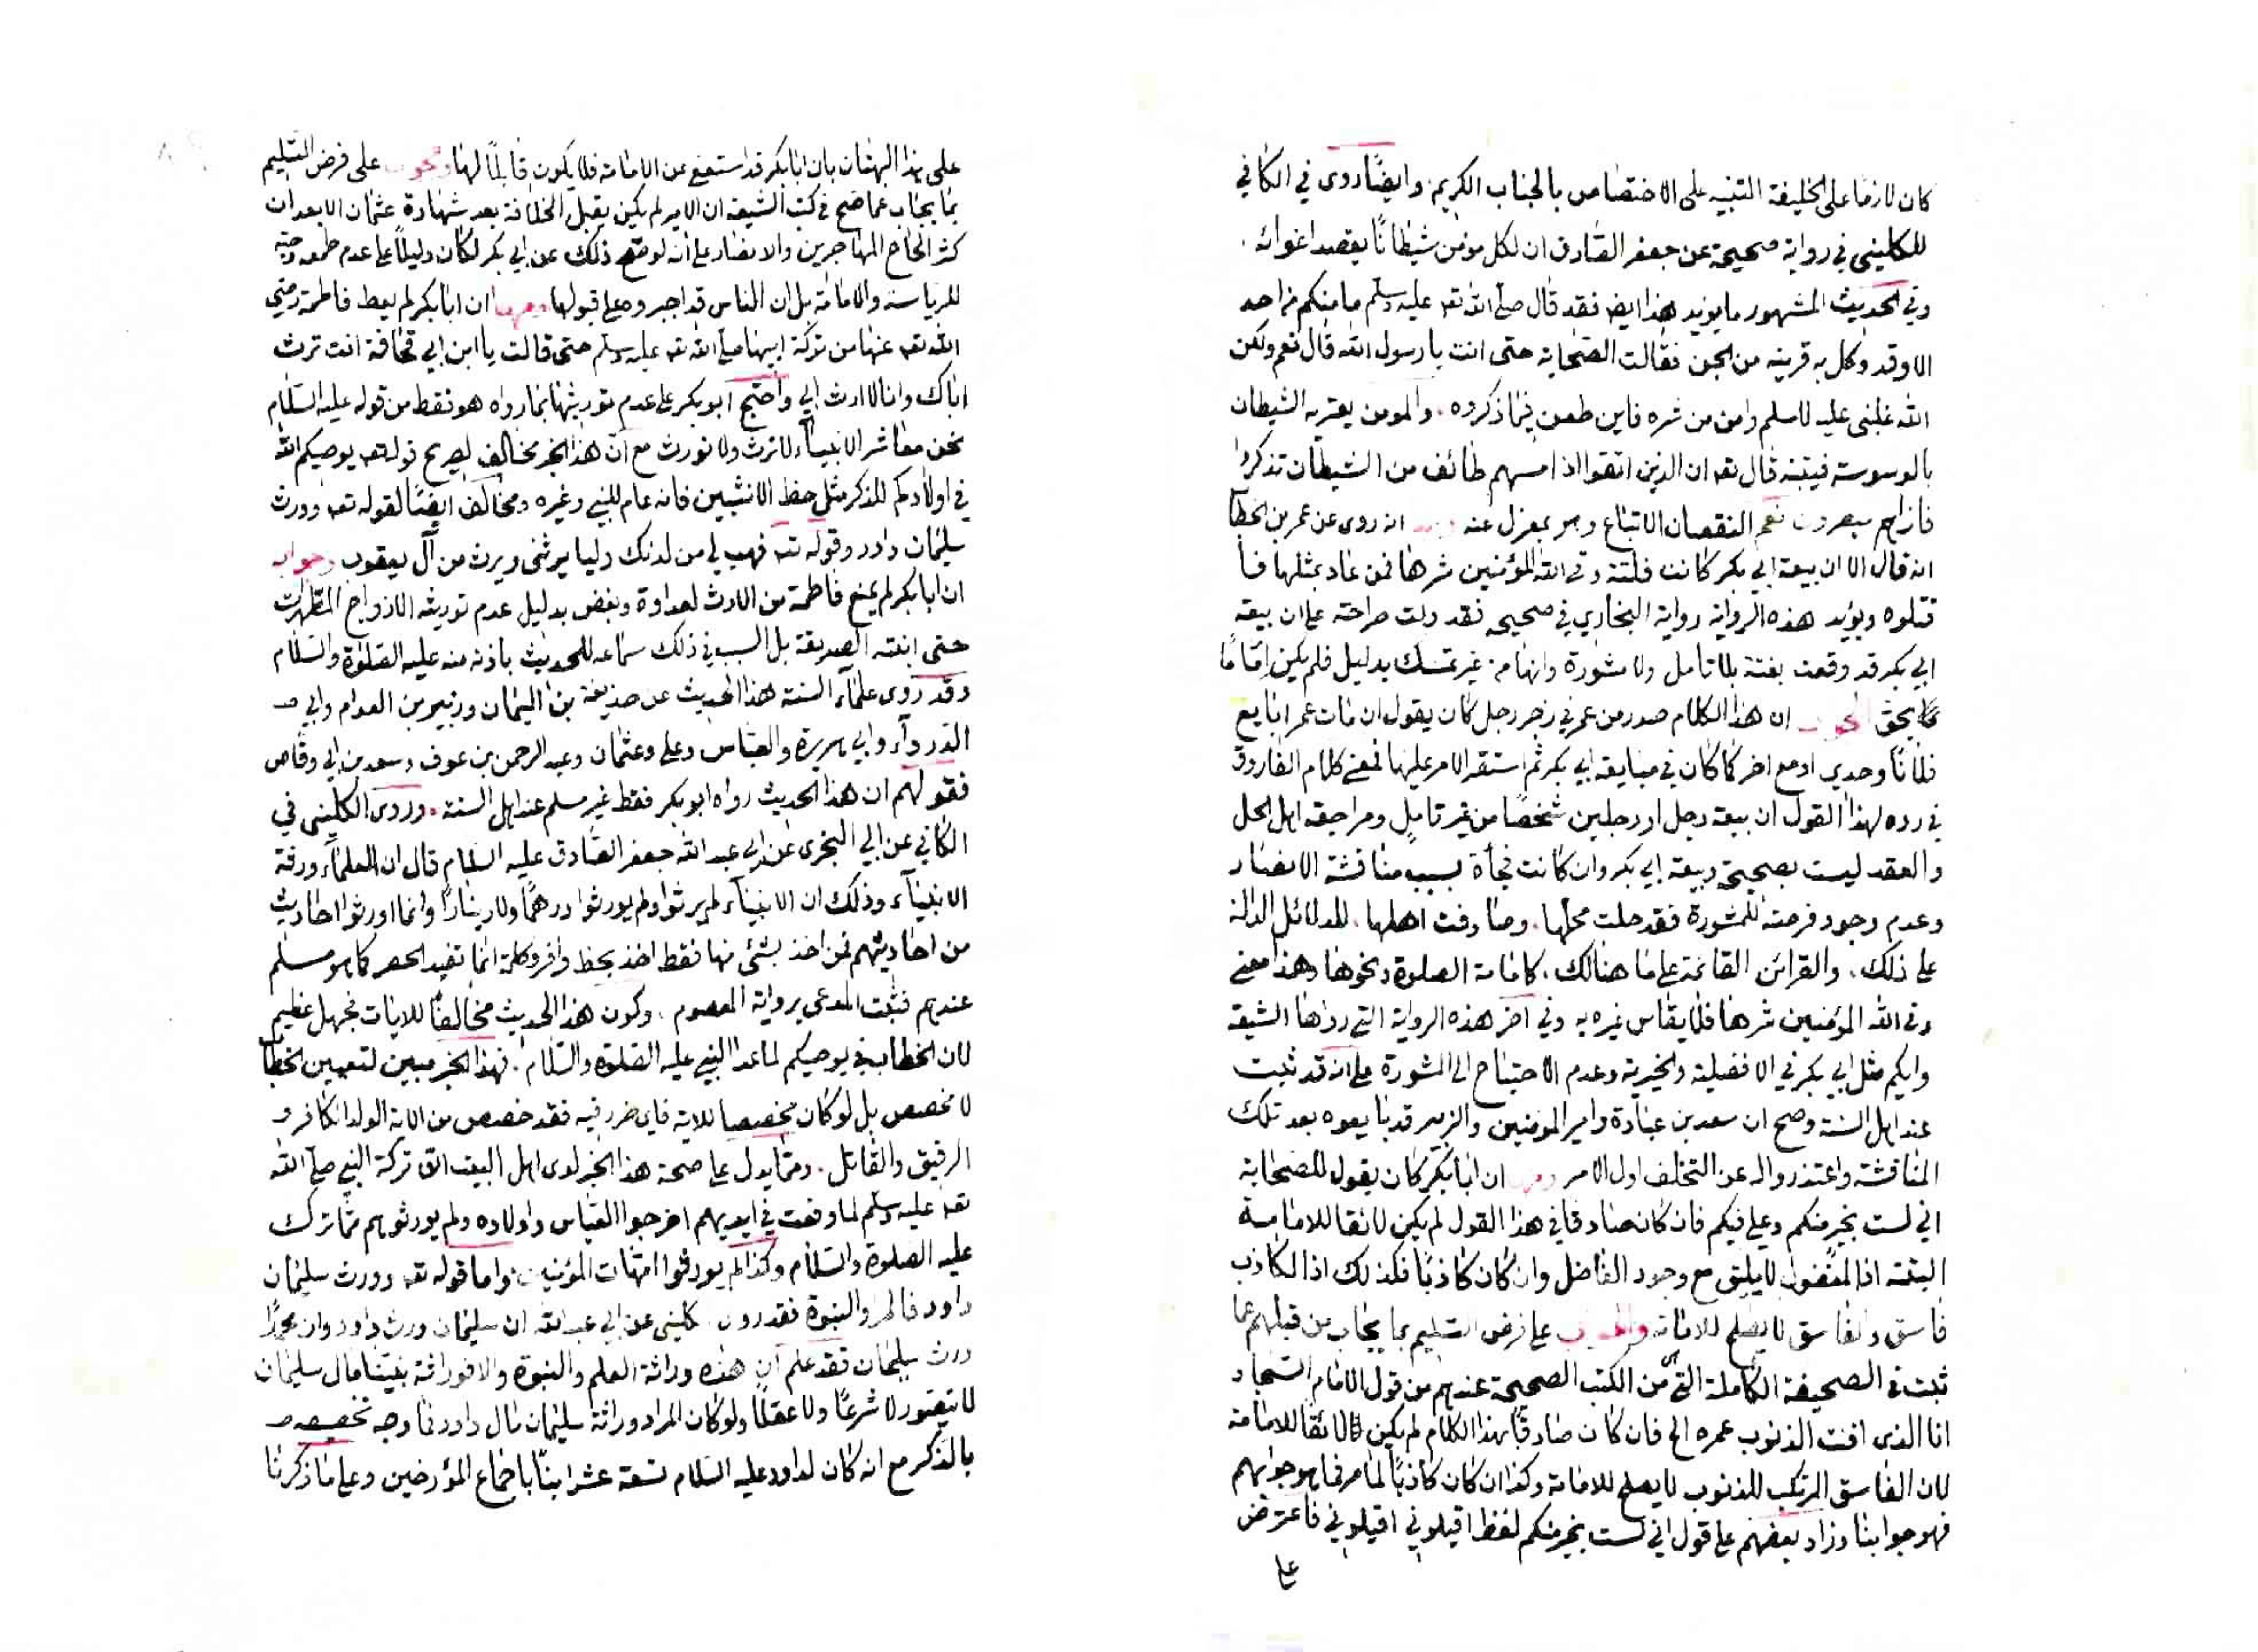 كان لازما على الخليفة التنبيه على الاختصاص بالجناب الكريم وايضًا روى في الكافي
للكليني في رواية صحيحة عن جعفر الصادق ان لكل مؤمن شيطانًا يقصد اغوائه .
وفي الحديث المشهور ما يؤيد هذا ايضا فقد قال صلى الله تعـ عليه وسلم ما منكم من احد
الا وقد وكل به قرينه من الجن فقالت الصحابة حتى انت يا رسول الله قال نعم ولكن
الله غلبنى عليه لاسلم وامن من شره فاين طعن فيما ذكروه . والمومن يعتريه الشيطان
بالوسوسة فيتبنه قال تعـ ان الذين اتقوا اذا مسهم طائف من الشيطان تذكروا
فاذا هم مبصرون نعم النقصان الاتباع وهو بمعزل عنه انه روى عن عمر بن الخطاب
انه قال الا ان بيعة ابي بكر كانت فلتة وقى الله المؤمنين شرها فمن عاد بمثلها فا
قتلوه ويؤيد هذه الرواية رواية البخاري في صحيحه فقد دلت صراحة على ان بيعة
ابي بكر قد وقعت بغتة بلا تامل ولا مشورة وانها من غير تمسك بدليل فلم يكن امامًا
بحق الجواب ان هذا الكلام صدر من عمر في زجر رجل كان يقول ان مات عمر ابايع
فلانًا وحدي او مع اخر كما كان في مبايعة ابي بكر ثم استقر الامر عليها فمعنى كلام الفاروق
في رده لهذا القول ان بيعة رجل او رجلين شخصًا من غير تامل ومراجعة اهل الحل
والعقد ليست بصحيحة وبيعة ابي بكر وان كانت فجأة بسبب مناقشة الانصار
وعدم وجود فرصة للمشورة فقد حلت محلها . وصادفت اهلها . للدلائل الدالة
على ذلك . والقرائن القائمة على ما هنالك . كامامة الصلوة ونحوها وهذا معنى
وقى الله المؤمنين شرها فلا يقاس غيره به وفي اخر هذه الرواية التي رواها الشيعة
وايكم مثل ابي بكر في الافضلية والخيرية وعدم الاحتياج الى المشورة على انه قد ثبت
عند اهل السنة وصح ان سعد بن عبادة وامير المومنين والزبير قد بايعوه بعد تلك
المناقشة واعتذروا له عن التخلف اول الامر ومنها ان ابا بكر كان يقول للصحابة
اني لست بخير منكم وعلي فيكم فان كان صادقا في هذا القول لم يكن لائقا للامامة
البتة اذ المفضول لا يليق مع وجود الفاضل وان كان كاذبًا فكذلك اذ الكاذب
فاسق والفاسق لا يصلح للامامة والجواب على فرض التسليم بما يجاب من قبلهم عما
ثبت في الصحيفة الكاملة التي من الكتب الصحيحة عندهم من قول الامام السجاد
انا الذي افنت الذنوب عمره الخ فان كان صادقًا بهذا الكلام لم يكن لائقا للامامة
لان الفاسق المرتكب للذنوب لا يصلح للامامة وكذا ان كان كاذبًا لما مر فما هو جوابهم
فهو جوابنا وزاد بعضهم على قول اني لست بخير منكم لفظ اقيلوني اقيلوني فاعترض
على
على هذا البهتان بان ابا بكر قد استعفى عن الامامة فلا يكون قابلًا لها والجواب على فرض التسليم
بما يجاب عما صح في كتب الشيعة ان الامير لم يكن يقبل الخلافة بعد شهادة عثمان الا بعد ان
كثر الحاح المهاجرين والانصار على انه لو صح ذلك عن ابي بكر لكان دليلًا على عدم طمعه وحبه
للرياسة والامامة بل ان الناس قد اجبروه على قبولها ومنها ان ابا بكر لم يعط فاطمة رضي
الله تعـ عنها من تركة ابيها صلى الله تعـ عليه وسلم حتى قالت يا ابن ابي قحافة انت ترث
اباك وانا لا ارث ابي واحتج ابو بكر على عدم توريثها بما رواه هو فقط من قوله عليه السلام
نحن معاشر الانبياء لا نرث ولا نورث مع ان هذا الخبر مخالف لصريح قوله تعـ يوصيكم الله
في اولادكم للذكر مثل حظ الانثيين فانه عام للنبي وغيره ومخالف ايضًا لقوله تعـ وورث
سليمان داود وقوله تعـ فهب لي من لدنك وليا يرثنى ويرث من آل يعقوب وجوابه
ان ابا بكر لم يمنع فاطمة من الارث لعداوة وبغض بدليل عدم توريثه الازواج المطهرات
حتى ابنته الصديقة بل السبب في ذلك سماعه للحديث باذنه منه عليه الصلوة والسلام
وقد روى علماء السنة هذا الحديث عن حذيفة بن اليمان وزبير بن العوام وابي
الدرداء وابي هريرة والعباس وعلي وعثمان وعبد الرحمن بن عوف وسعد بن ابي وقاص
فقولهم ان هذا الحديث رواه ابو بكر فقط غير مسلم عند اهل السنة . وروى الكليني في
الكافي عن ابي البختري عن ابي عبد الله جعفر الصادق عليه السلام قال ان العلماء ورثة
الانبياء وذلك ان الانبياء لم يرثوا ولم يورثوا درهمًا ولا دينارًا وانما اورثوا احاديث
من احاديثهم فمن اخذ بشئ منها فقط اخذ بحظ وافر وكلمة انما تفيد الحصر كما هو مسلم
عندهم فثبت المدعى برواية المعصوم . وكون هذا الحديث مخالفًا للايات فجهل عظيم
لان الخطاب في يوصيكم لما عدا النبي عليه الصلوة والسلام . فهذا الخبر مبين لتعيين الخطاب
لا مخصص بل لو كان مخصصا للاية فاي ضرر فيه فقد خصص من الاية الولد الكافر و
الرقيق والقاتل . ومما يدل على صحة هذا الخبر لدى اهل البيت ان تركة النبي صلى الله
تعـ عليه وسلم لما وقعت في ايديهم اخرجوا العباس واولاده ولم يورثوهم مما ترك
عليه الصلوة والسلام وكذا لم يورثوا امهات المؤمنين واما قوله تعـ وورث سليمان
داود فالمراد النبوة فقد روى كليني عن ابي عبد الله ان سليمان ورث داود وان محمدًا
ورث سليمان فقد علم ان هذه وراثة العلم والنبوة والا فوراثة نبينا مال سليمان
لا يتصور لا شرعًا ولا عقلًا ولو كان المراد وراثة سليمان مال داود فما وجه تخصيصه
بالذكر مع انه كان لداود عليه السلام تسعة عشر ابنًا باجماع المؤرخين وعلى ما ذكرنا